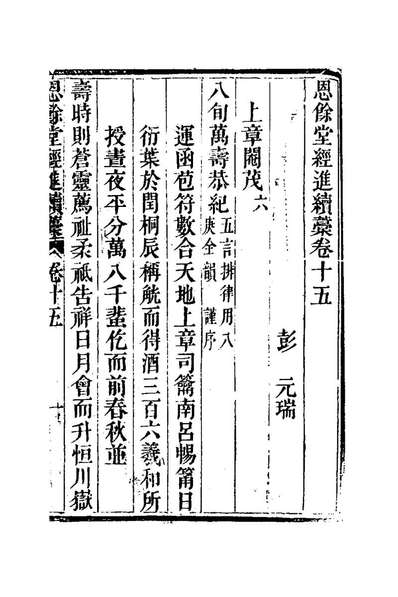 恩餘堂經進續藁卷十五
彭元瑞
上章閹茂六
八旬萬壽恭紀五言排律用八庚全韻謹序
運函苞符數合天地上章司籥南呂暢篇日
衍葉於閏桐辰稱觥而得酒三百六羲和所
授晝夜平分萬八千蜚仡而前春秋並
壽時則蒼靈薦祉柔祗告祥日月會而升恒川嶽
恩餘堂經進續藁 卷十五 一